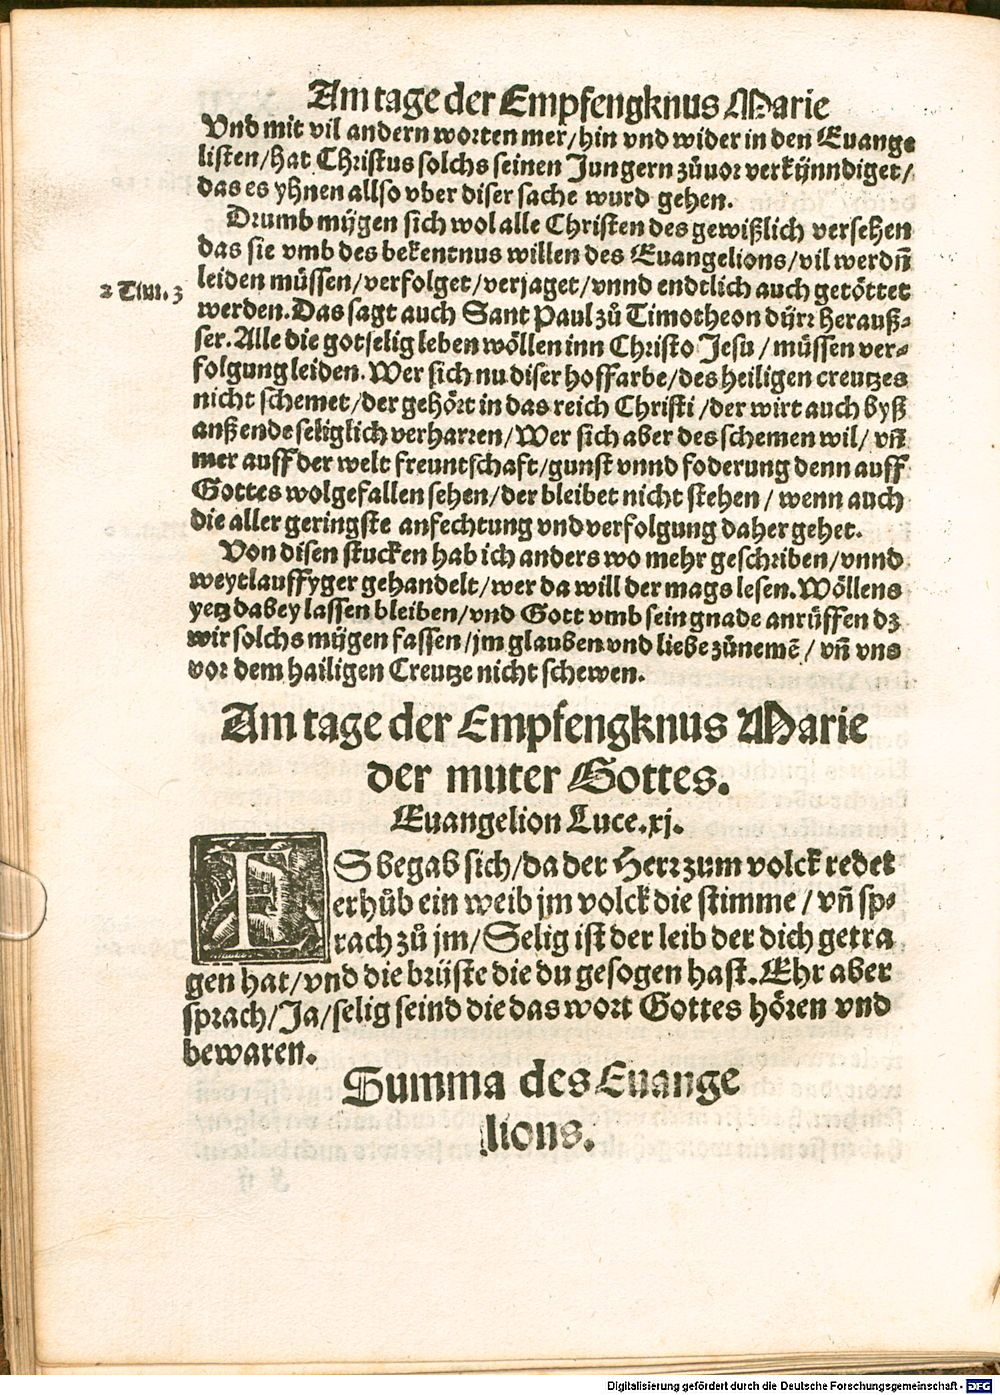 Am tage der Empfengknus Marie
Vnd mit vil andern worten mer/hin vnd wider in den Euange
listen/hat Christus solchs seinen Jungern zůuor verkÿnndiget/
das es yhnen allso vber diser sache wurd gehen.
Drumb mÿgen sich wol alle Christen des gewißlich versehen
das sie vmb des bekentnus willen des Euangelions/vil werdñ
2 Tim. 3
leiden müssen/verfolget/verjaget/vnnd endtlich auch getöttet
werden. Das sagt auch Sant Paul zů Timotheon dÿrr herauß-
ser. Alle die gotselig leben wöllen inn Christo Jesu/müssen ver-
folgung leiden. Wer sich nu diser hoffarbe/des heiligen creutzes
nicht schemet/der gehört in das reich Christi/der wirt auch byß
anß ende seliglich verharren/Wer sich aber des schemen wil/vñ
mer auff der welt freuntschaft/gunst vnnd foderung denn auff
Gottes wolgefallen sehen/der bleibet nicht stehen/wenn auch
die aller geringste anfechtung vnd verfolgung daher gehet.
Von disen stucken hab ich anders wo mehr geschriben/vnnd
weytlauffyger gehandelt/wer da will der mags lesen. Wöllens
yetz dabey lassen bleiben/vnd Gott vmb sein gnade anrüffen dz
wir solchs mÿgen fassen/jm glauben vnd liebe zůnemē/vñ vns
vor dem hailigen Creutze nicht schewen.
Am tage der Empfengknus Marie
der muter Gottes.
Euangelion Luce.xj.
ES begab sich/da der Herr zum volck redet
erhůb ein weib jm volck die stimme/vñ sp-
rach zů jm/Selig ist der leib der dich getra
gen hat/vnd die brüste die du gesogen hast. Ehr aber
sprach/Ja/selig seind die das wort Gottes hören vnd
bewaren.
Summa des Euange
lions.
Digitalisierung gefördert durch die Deutsche Forschungsgemeinschaft - DFG